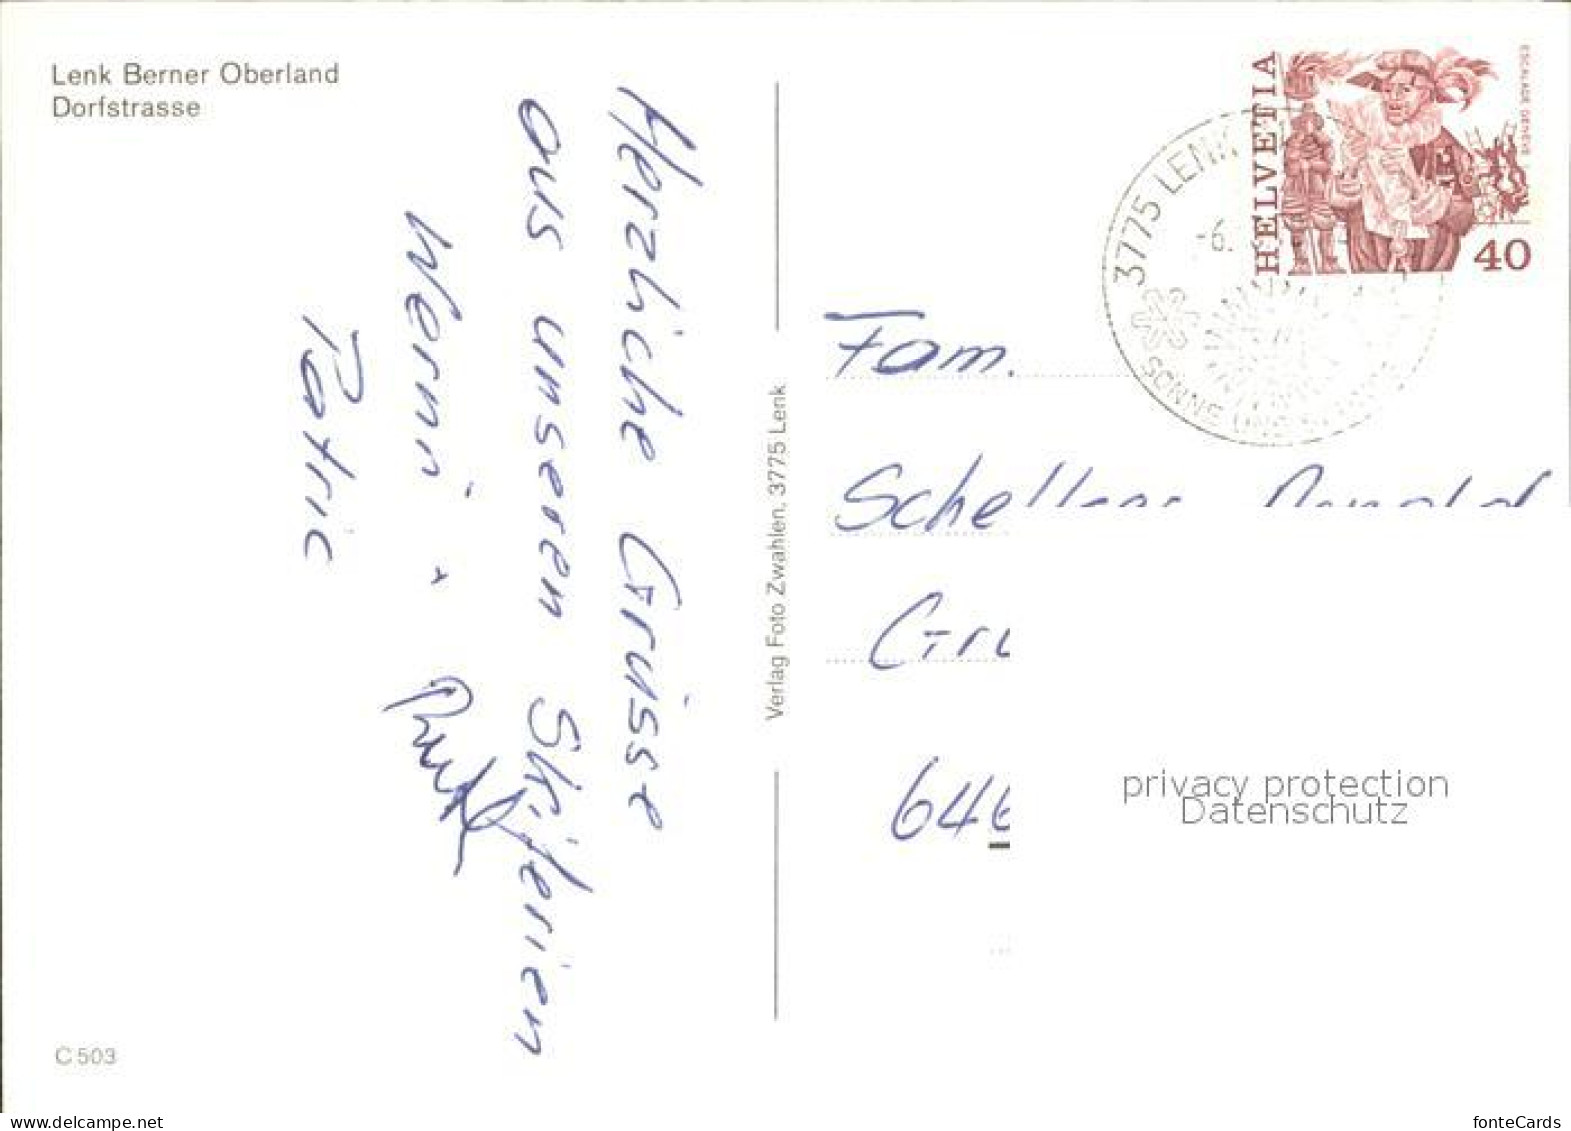 Lenk Berner Oberland
Dorfstrasse
Herzliche Grüsse
aus unseren Skiferien
Werni +
Patric
C 503
Verlag Foto Zwahlen, 3775 Lenk
HELVETIA
ESCALADE GENEVE
40
3775 LENK
-6.
SONNE UND
Fam.
privacy protection
Datenschutz
www.delcampe.net
fonteCards